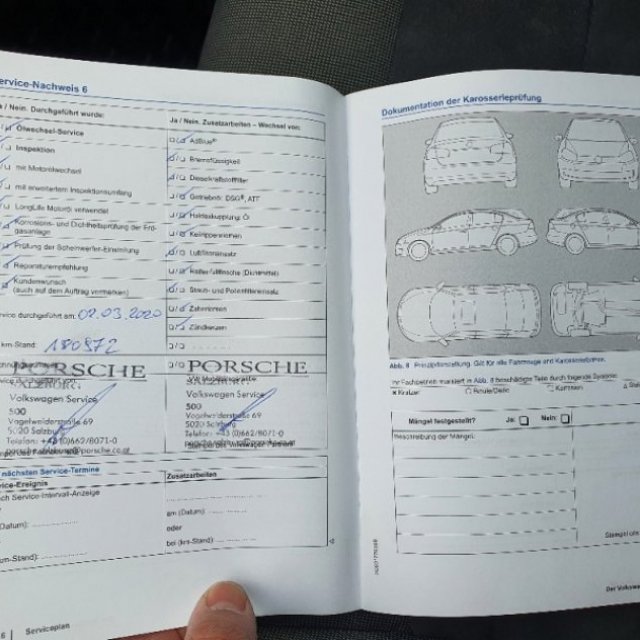 ervice-Nachweis 6
Ja / Nein. Durchgeführt wurde:
Ölwechsel-Service
Inspektion
mit Motorölwechsel
mit erweitertem Inspektionsumfang
LongLife Motoröl verwendet
Korrosions- und Dichtheitsprüfung der Erd-
gasanlage
Prüfung der Scheinwerfer-Einstellung
Reparaturempfehlung
Kundenwunsch
(auch auf dem Auftrag vermerken)
rvice durchgeführt am: 02.03.2020
km-Stand: 180872
Ja / Nein. Zusatzarbeiten – Wechsel von:
AdBlue®
Bremsflüssigkeit
Dieselkraftstofffilter
Getriebeöl: DSG®, ATF
Haldexkupplung: Öl
Keilrippenriemen
Luftfiltereinsatz
Reifenfüllflasche (Dichtmittel)
Staub- und Pollenfiltereinsatz
Zahnriemen
Zündkerzen
PORSCHE
Volkswagen Service
500
Vogelweiderstraße 69
5020 Salzburg
Telefon: +43(0)662/8071-0
PORSCHE
Volkswagen Service
500
Vogelweiderstraße 69
5020 Salz
Telefon: +43 (0)662/8071-0
nächsten Service-Termine
vice-Ereignis
ch Service-Intervall-Anzeige
(Datum):
km-Stand):
Zusatzarbeiten
am (Datum):
oder
bei (km-Stand):
6 | Serviceplan
Dokumentation der Karosserieprüfung
Abb. 8 Prinzipdarstellung: Gilt für alle Fahrzeuge und Karosserieformen.
Ihr Fachbetrieb markiert in Abb. 8 beschädigte Teile durch folgende Symbole:
× Kratzer
○ Beule/Delle
Mängel festgestellt?
Ja:
Nein:
Beschreibung der Mängel:
Stempel des
Der Volkswa